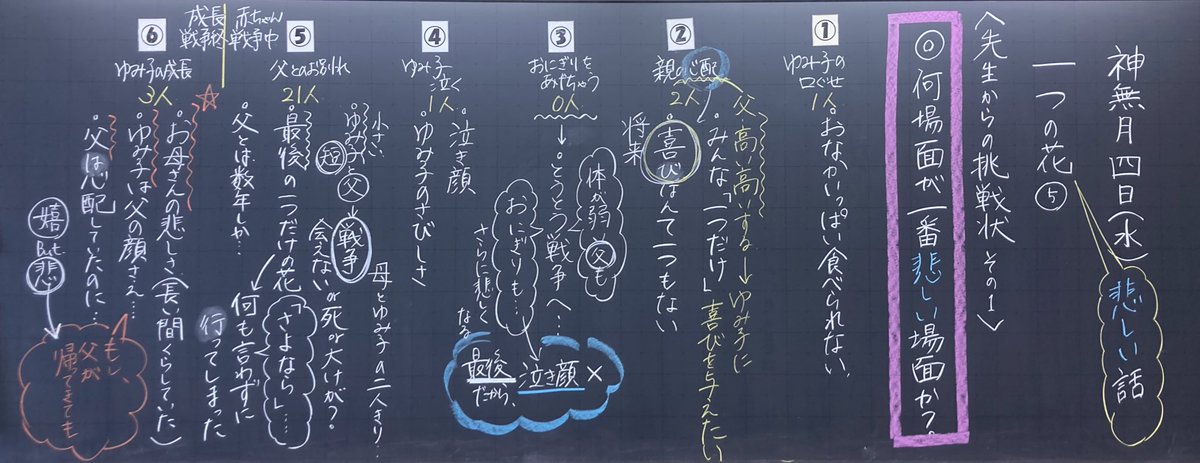 神無月四日(水)
悲しい話
一つの花⑤
〈先生からの挑戦状 その1〉
◎何場面が一番悲しい場面か?
①
ゆみ子の
口ぐせ
1人
・おなかいっぱい食べられない。
②
親の心配
2人
父 高い高いする→ゆみ子に
喜びを与えたい
・みんな「一つだけ」
・喜びなんて一つもない
将来
③
おにぎりを
あげちゃう
0人
体が弱い父も
→・とうとう戦争へ…
おにぎりも…
さらに悲しく
なる
最後
だから、
泣き顔×
④
ゆみ子
泣く
1人
・泣き顔
・ゆみ子のさびしさ
⑤
父とのお別れ
21人
小さい
・ゆみ子と父→戦争
母とゆみ子の二人きり…
会えないor死or大けが?
・最後の一つだけの花
「さよなら」…
何も言わずに
行ってしまった
父とは数年しか…
赤ちゃん
戦争中
成長
戦争終
⑥
ゆみ子の成長
3人
☆
・お母さんの悲しさ(長い間くらしていた)
・ゆみ子は父の顔さえ…
・父は心配していたのに…
嬉
but
悲
もし、
父が
帰ってきても